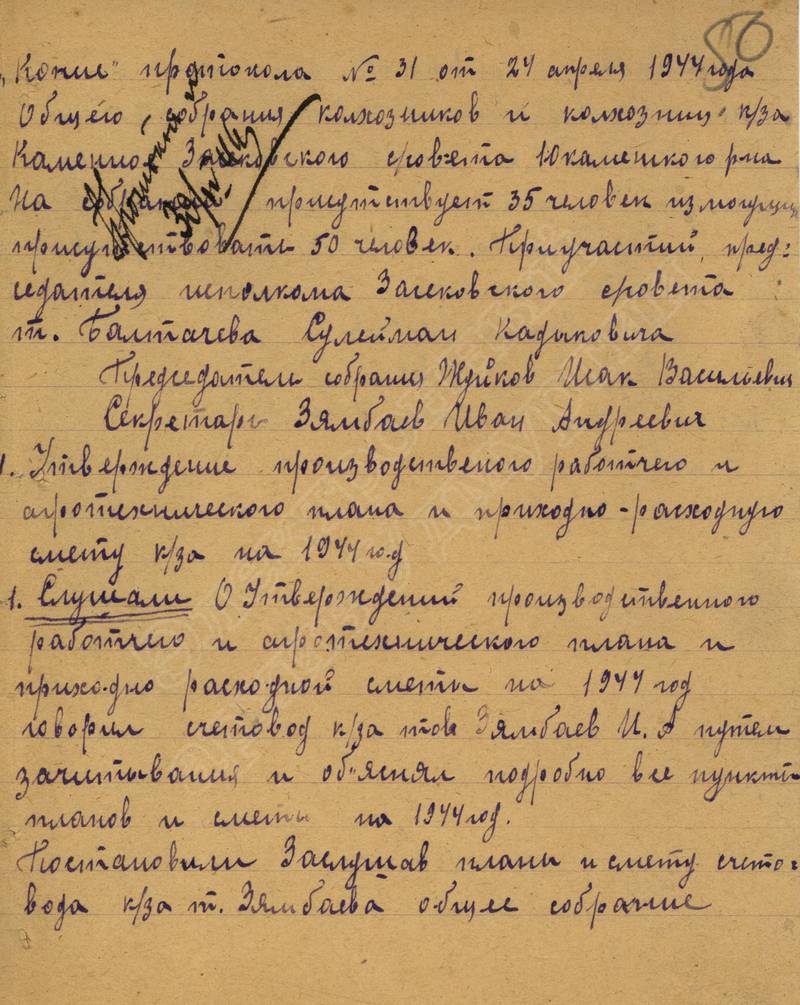 50
„Копие" протокола № 31 от 24 апреля 1944 года
Общего собрания колхозников и колхозниц к/за
Каменно Засековского с/совета Юкаменского р-на
На собрании присутствует 35 человек из могущих
присутствовать 50 человек. Приучастий пред-
седателя исполкома Засековского с/совета
т. Балтачева Сулейман Кадыковича
Председатели собрания Ждиков Исак Васильевич
Секретарь Зямбаев Иван Андреевич
1. Утверждение производственого работчего и
агротехнического плана и приходно-расходную
смету к/за на 1944 год
1. Слушали О Утверждений производственного
работчего и агротехнического плана и
приходно расходной сметы на 1944 год
говорил счетовод к/за тов Зямбаев И. А путем
зачитывания и об'яснял подробно все пункты
планов и сметы на 1944 год.
Постановили Заслушав планы и смету счето-
вода к/за т. Зямбаева общее собрание